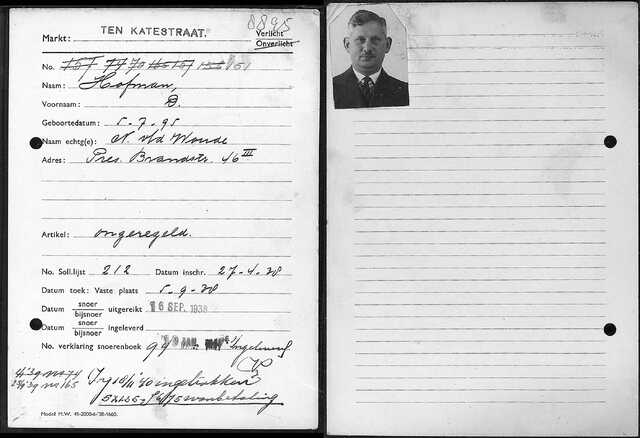 8895
Markt: TEN KATESTRAAT.
Verlicht
Onverlicht
No. 157 74 70 165 167 151
Naam: Hofman,
Voornaam: D.
Geboortedatum: 5-7-95
Naam echtg(e): N. v/d Woude
Adres: Pres. Brandstr. 46 III
Artikel: ongeregeld.
No. Soll.lijst 212 Datum inschr. 27-4-38
Datum toek: Vaste plaats 5-9-38
Datum snoer bijsnoer uitgereikt 16 SEP. 1938
Datum snoer bijsnoer ingeleverd
No. verklaring snoerenboek 94 JAN. Ingeleverd
4/'39 no 74
no 165
ingetrokken
wanbetaling
Model M.W. 41-2000-6/'38-1660.